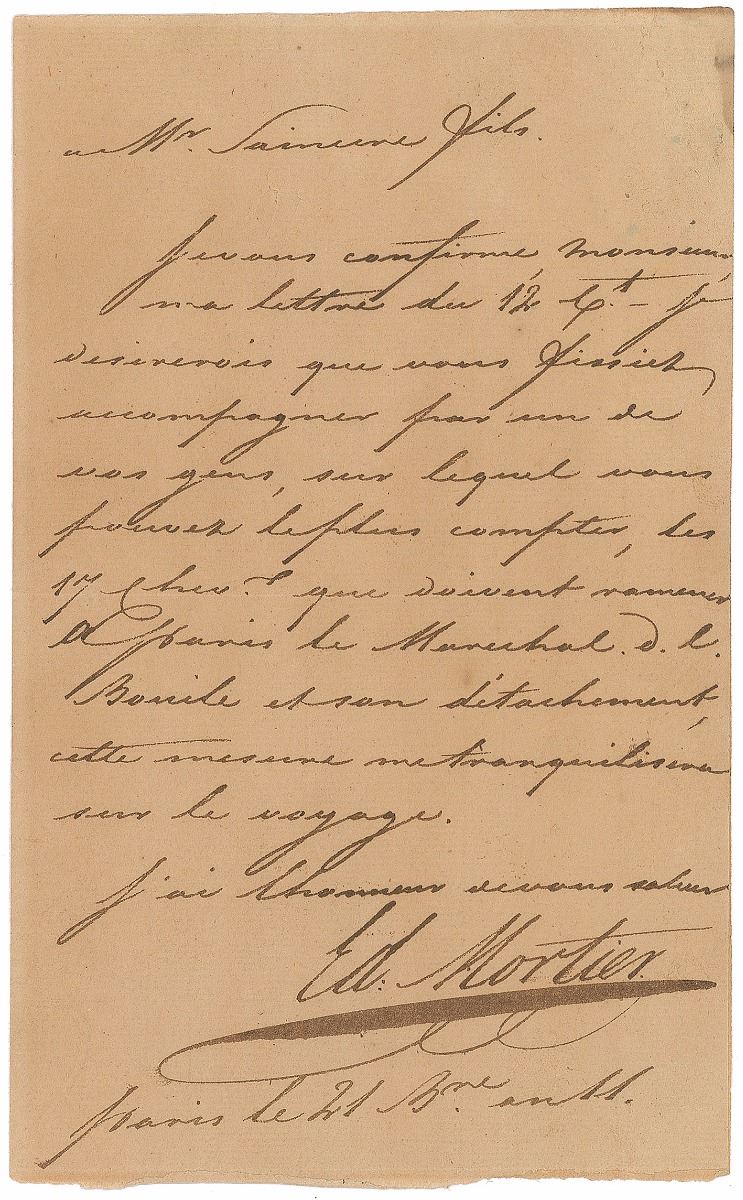 a Mr. Saineure fils.
Je vous confirme, monsieur,
ma lettre du 12 Ct - Je
desirerois que vous fissiez
accompagner par un de
vos gens, sur lequel vous
pouvez le plus compter, les
17 chev.x que doivent ramener
a Paris le Marechal. d. l.
et son détachement,
cette mesure me tranquilisera
sur le voyage.
J'ai l'honneur de vous saluer
Ed. Mortier.
Paris le 21 an 11.